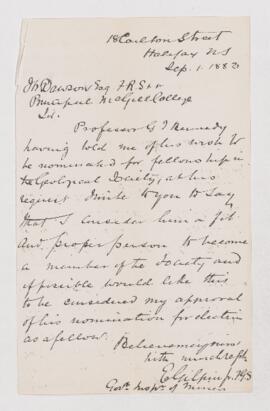 18 Carlton Street
Halifax N.S
Sep. 1. 1883
J W Dawson Esq F.R.S
Principal McGill College
Sir.
Professor G T Kennedy
having told me of his wish to
be nominated for fellowship in
the Geological Society, at his
request I write to you to say
that I consider him a fit
and proper person to become
a member of the Society and
if possible would like this
to be considered my approval
of his nomination for election
as a fellow.
Believe me yours
with much respt
E Gilpin Jr. FGS
Govt Inspr of Mines